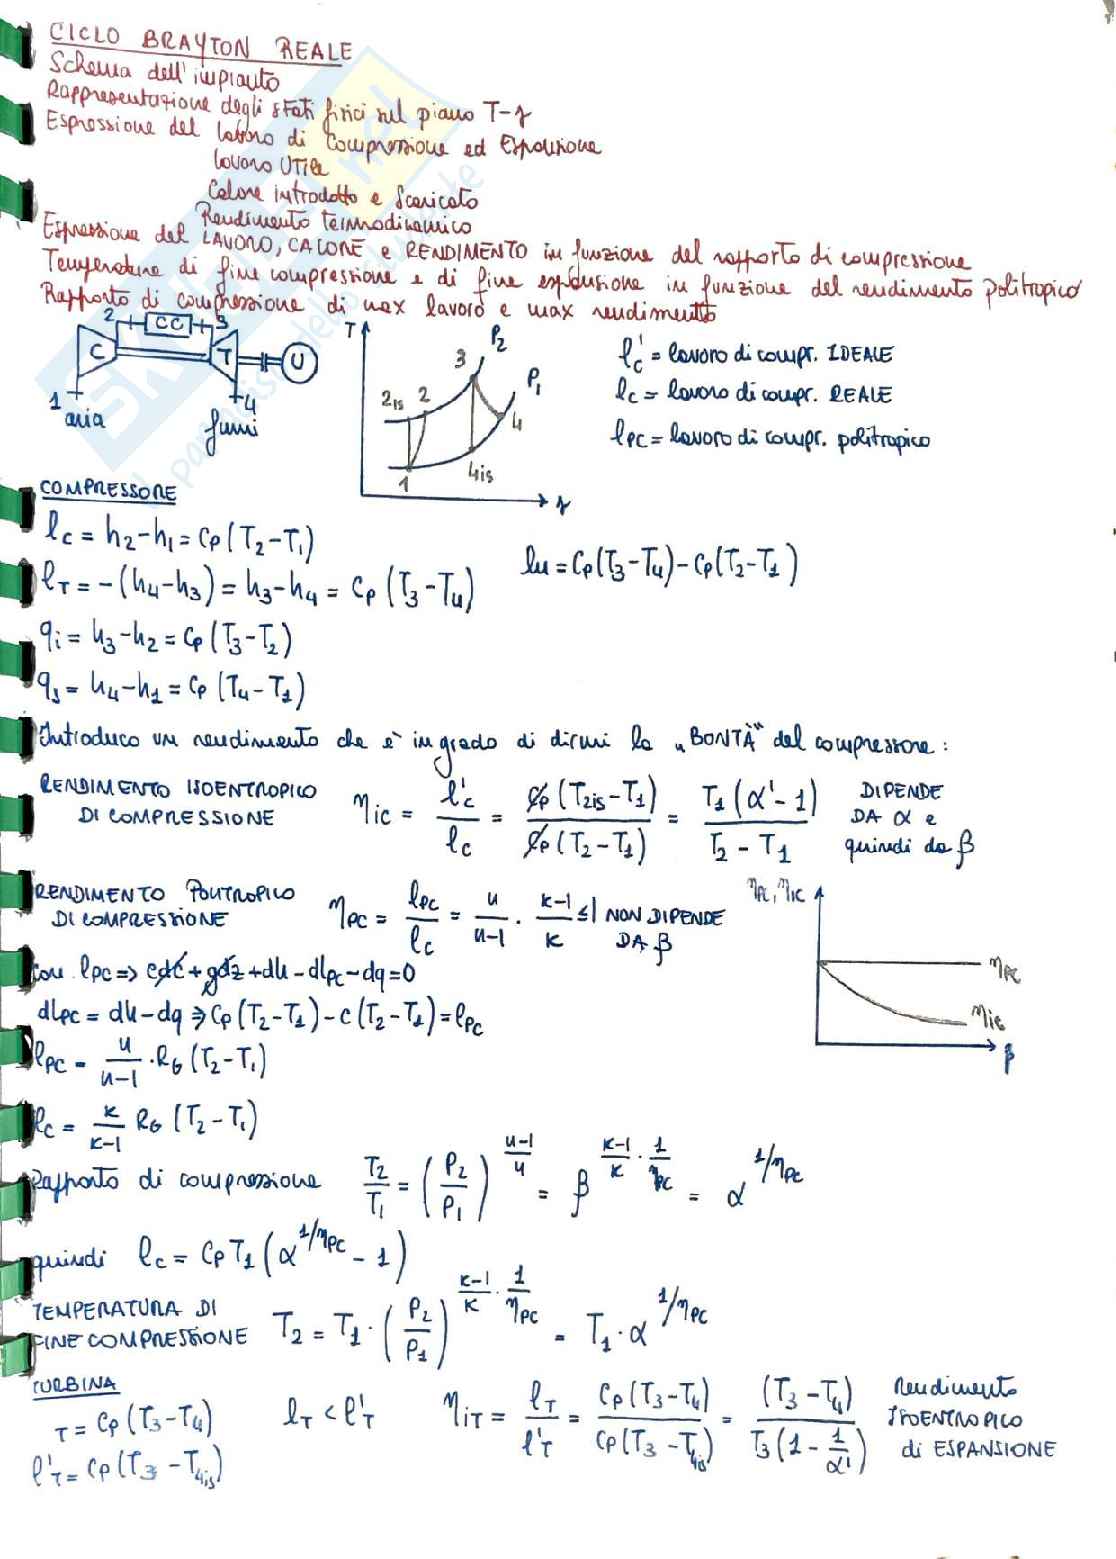 CICLO BRAYTON REALE
Schema dell'impianto
Rappresentazione degli stati fisici nel piano T-s
Espressione del lavoro di Compressione ed Espansione
lavoro UTILE
Calore introdotto e Scaricato
Rendimento termodinamico
Espressione del LAVORO, CALORE e RENDIMENTO in funzione del rapporto di compressione
Temperature di fine compressione e di fine espansione in funzione del rendimento politropico
Rapporto di compressione di max lavoro e max rendimento
2 CC 3
C T U
1 4
aria fumi
T P2
3 P1
2is 2
4
4is
1
s
lc' = lavoro di compr. IDEALE
lc = lavoro di compr. REALE
lPC = lavoro di compr. politropico
COMPRESSORE
lc = h2-h1 = Cp(T2-T1)
lu = Cp(T3-T4)-Cp(T2-T1)
lT = -(h4-h3) = h3-h4 = Cp (T3-T4)
qi = h3-h2 = Cp (T3-T2)
qs = h4-h1 = Cp (T4-T1)
Introduco un rendimento che è in grado di dirmi la "BONTÀ" del compressore:
RENDIMENTO ISOENTROPICO DI COMPRESSIONE ηic = l'c/lc = Cp(T2is-T1)/Cp(T2-T1) = T1(α'-1)/(T2-T1) DIPENDE DA α e quindi da β
RENDIMENTO POLITROPICO DI COMPRESSIONE ηPC = lPC/lc = n/(n-1) · (k-1)/k ≤ 1 NON DIPENDE DA β
ηPC, ηic
ηPC
ηic
β
con lPC => cdc + gdz + dh - dlPC - dq = 0
dlPC = dh-dq => Cp(T2-T1)-c(T2-T1) = lPC
lPC = n/(n-1) · RG (T2-T1)
lc = k/(k-1) RG (T2-T1)
Rapporto di compressione T2/T1 = (P2/P1)^((n-1)/n) = β^((k-1)/k · 1/ηPC) = α^(1/ηPC)
quindi lc = CpT1(α^(1/ηPC) - 1)
TEMPERATURA DI FINE COMPRESSIONE T2 = T1 · (P2/P1)^((k-1)/k · 1/ηPC) = T1 · α^(1/ηPC)
TURBINA
T = Cp(T3-T4) lT < l'T ηiT = lT/l'T = Cp(T3-T4)/Cp(T3-T4is) = (T3-T4)/T3(1 - 1/α') Rendimento ISOENTROPICO di ESPANSIONE
l'T = Cp(T3-T4is)